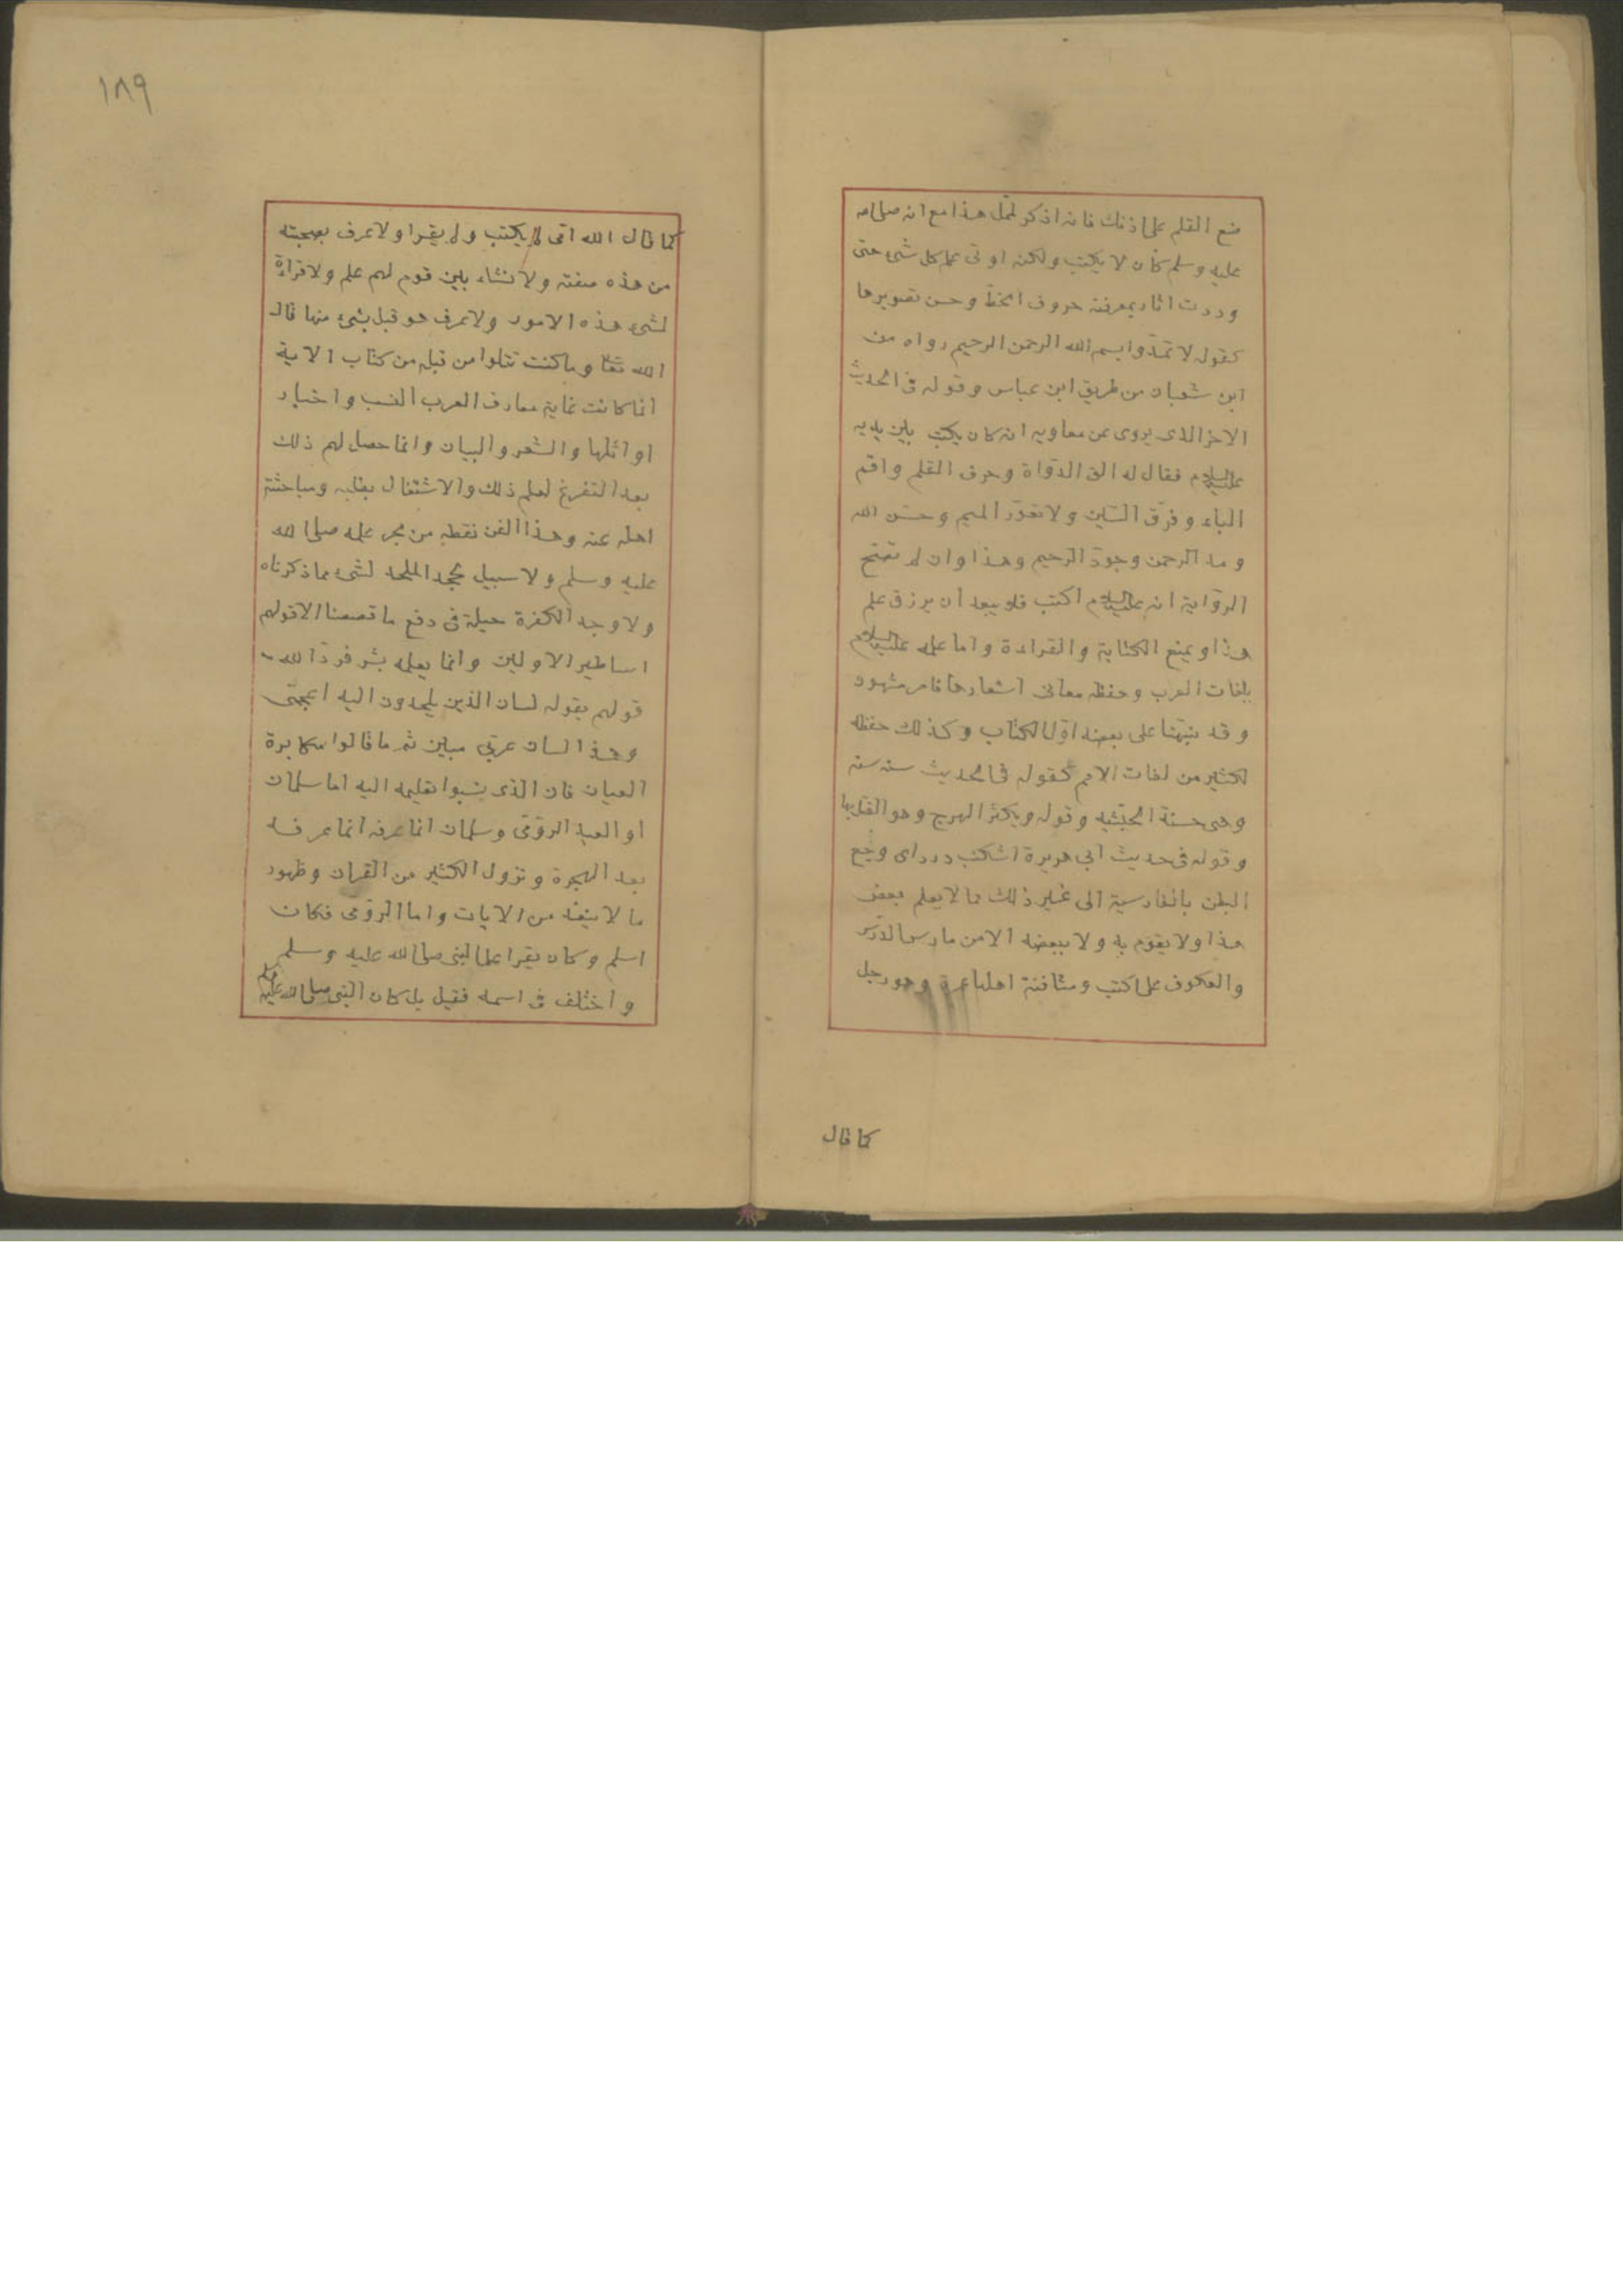 ضع القلم على اذنك فانه اذكر لممل هذا مع انه صلى الله
عليه وسلم كان لا يكتب ولكنه اوتى علم كل شئ حتى
وردت اثار بمعرفته حروف الخط وحسن تصويرها
كقوله لا تمدوا بسم الله الرحمن الرحيم رواه من
ابن شعبان من طريق ابن عباس وقوله فى الحديث
الاخر الذى يروى عن معاويه انه كان يكتب بين يديه
عليه السلام فقال له الق الدواة وحرف القلم واقم
الباء وفرق السين ولا تعور الميم وحسن الله
ومد الرحمن وجود الرحيم وهذا وان لم تصح
الرواية انه عليه السلام اكتب فلا يبعد ان يرزق علم
هذا ويمنع الكتابة والقراءة واما علمه عليه السلام
بلغات العرب وحفظه معانى اشعارها فامر مشهود
وقد نبهنا على بعضه اول الكتاب وكذلك حفظه
لكثير من لغات الامم كقوله فى الحديث سنه سنه
وهى حسنة الحبشيه وقوله ويكثر الهرج وهو القتل بها
وقوله فى حديث ابى هريرة اشكنب دردای وجع
البطن بالفارسية الى غير ذلك مما لا يعلم بعض
هذا ولا يقوم به ولا ببعضه الا من مارس الدرس
والعكوف على اكتب ومثافنة اهلها عمره وهو رجل
كما قال
١٨٩
كما قال الله امى لم يكتب ولم يقرا ولا عرف بصحبته
من هذه صفته ولا نشاء بين قوم لهم علم ولا قراءة
لشئ هذه الامور ولا عرف هو قبل بشئ منها قال
الله تعا وما كنت تتلوا من قبله من كتاب الاية
انما كانت غاية معارف العرب النسب واخبار
اوائلها والشعر والبيان وانما حصل لهم ذلك
بعد التفرغ لعلم ذلك والاشتغال بطلبه ومباحثة
اهله عنه وهذا الفن نقطه من بحر علمه صلى الله
عليه وسلم ولا سبيل لجحد الملحد لشئ مما ذكرناه
ولا وجد الكفرة حيلة فى دفع ما قصصنا الا قولهم
اساطير الاولين وانما يعلمه بشر فرد الله
قولهم بقوله لسان الذين يلحدون اليه اعجمى
وهذا لسان عربى مبين ثم ما قالوا مكابرة
العيان فان الذى نسبوا تعليمه اليه اما سلمان
او العبد الرومى وسلمان انما عرفه انما عرفه
بعد الهجرة ونزول الكثير من القران وظهور
ما لا ينعد من الايات واما الرومى فكان
اسلم وكان يقرا على النبى صلى الله عليه وسلم
واختلف فى اسمه فقيل بل كان النبى صلى الله عليه وسلم